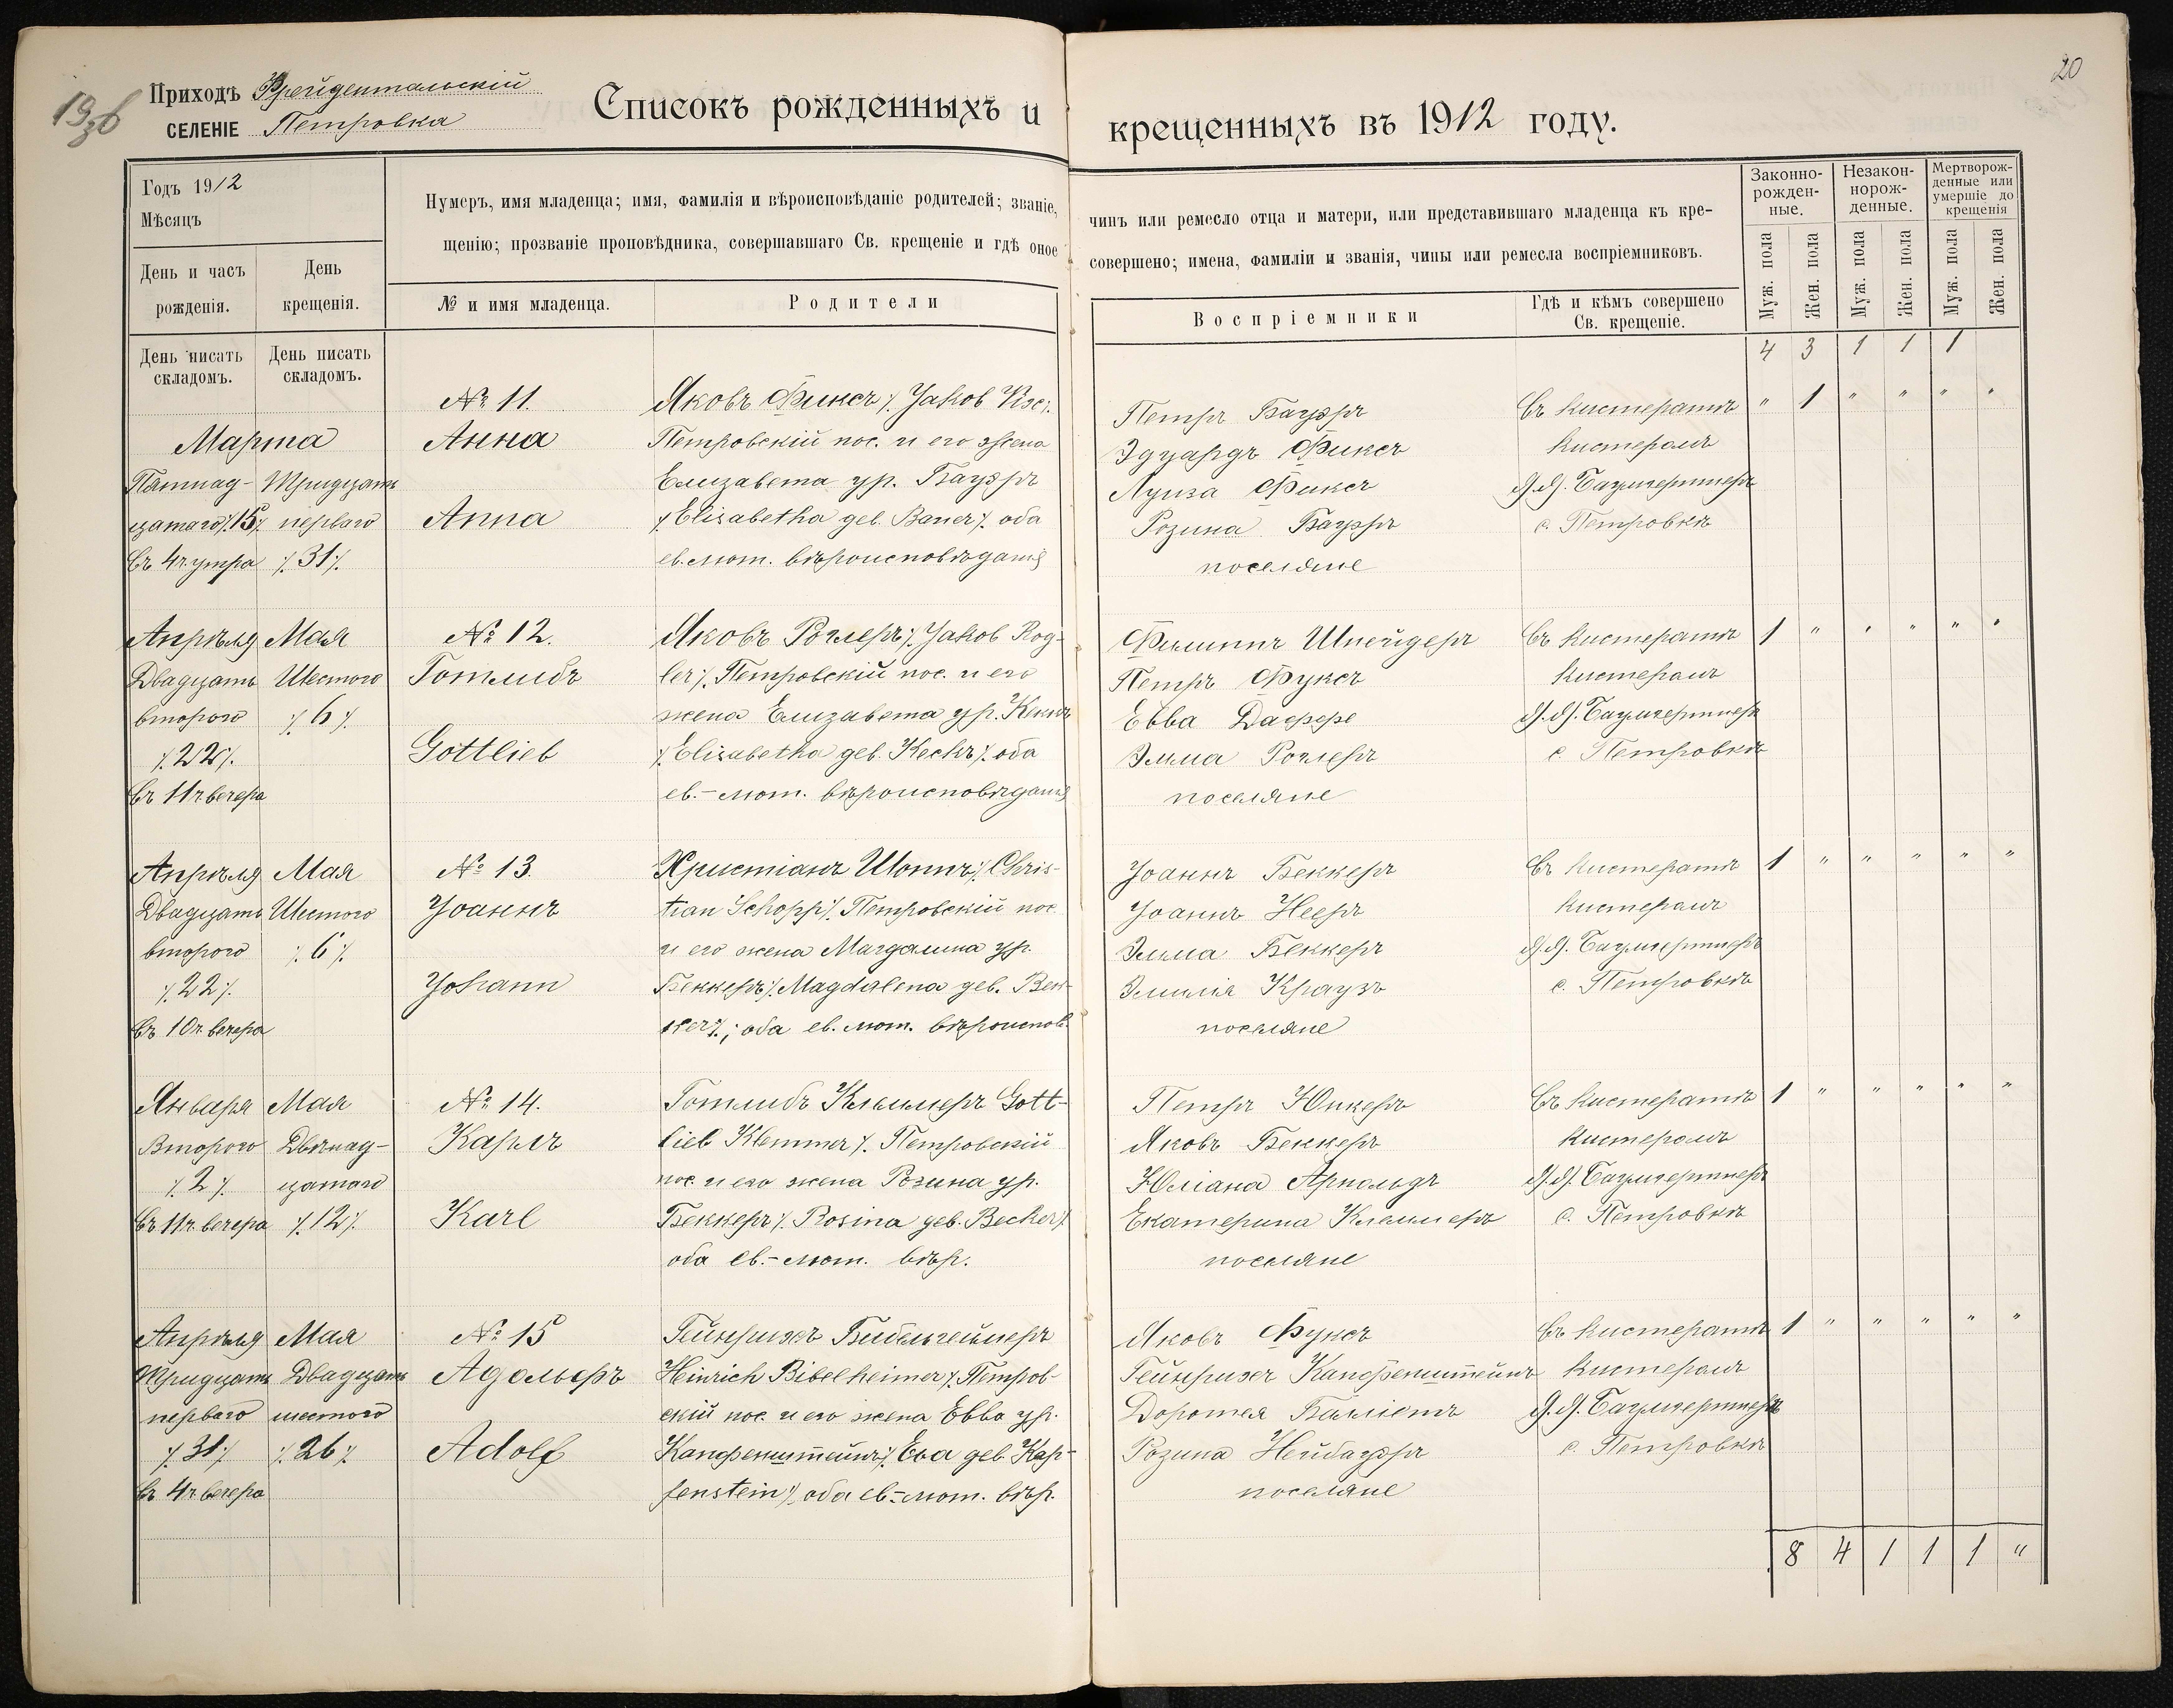 19зб
20
Приходъ Фрейдентальскій
СЕЛЕНІЕ Петровка
Списокъ рожденныхъ и крещенныхъ въ 1912 году.
Годъ 1912
Мѣсяцъ
Нумеръ, имя младенца; имя, фамилія и вѣроисповѣданіе родителей; званіе, чинъ или ремесло отца и матери, или представившаго младенца къ кре-
щенію; прозваніе проповѣдника, совершавшаго Св. крещеніе и гдѣ оное совершено; имена, фамиліи и званія, чины или ремесла воспріемниковъ.
Законно-
рожден-
ные.
Незакон-
норож-
денные.
Мертворож-
денные или
умершіе до
крещенія
День и часъ
рожденія.
День
крещенія.
№ и имя младенца.
Родители
Воспріемники
Гдѣ и кѣмъ совершено
Св. крещеніе.
Муж. пола
Жен. пола
Муж. пола
Жен. пола
Муж. пола
Жен. пола
День писать
складомъ.
День писать
складомъ.
4 3 1 1 1
Марта
Пятнад-
цатаго /.15/.
Въ 4 ч. утра
Тридцать
перваго
/.31/.
№ 11.
Анна
Anna
Яковъ Фиксъ /. Jakob Fix /.
Петровскій пос. и его жена
Елизавета ур. Бауэръ
/. Elisabetha geb. Bauer /. оба
ев. лют. вѣроисповѣданія
Петръ Бауэръ
Эдуардъ Фиксъ
Луиза Фиксъ
Розина Бауэръ
поселяне
Въ кистератѣ
кистеромъ
Я. Я. Баумгертнеръ
с. Петровкѣ
" 1 " " " "
Апрѣля
Двадцать
второго
/.22/.
Въ 11 ч. вечера
Мая
Шестого
/.6/.
№ 12.
Готлибъ
Gottlieb
Яковъ Роглеръ /. Jakob Rog-
ler /. Петровскій пос. и его
жена Елизавета ур. Кеккъ
/. Elisabetha geb. Keck /. оба
ев.-лют. вѣроисповѣданія
Филиппъ Шнейдеръ
Петръ Фуксъ
Евва Даффе
Эмма Роглеръ
поселяне
Въ кистератѣ
кистеромъ
Я. Я. Баумгертнеръ
с. Петровкѣ
1 " " " " "
Апрѣля
Двадцать
второго
/.22/.
Въ 10 ч. вечера
Мая
Шестого
/.6/.
№ 13.
Іоаннъ
Johann
Христіанъ Шоппъ /. Chris-
tian Schopp /. Петровскій пос.
и его жена Магдалина ур.
Беккеръ /. Magdalena geb. Bek-
ker /.; оба ев. лют. вѣроиспов.
Іоаннъ Беккеръ
Іоаннъ Нееръ
Эмма Беккеръ
Эмилія Краузъ
поселяне
Въ кистератѣ
кистеромъ
Я. Я. Баумгертнеръ
с. Петровкѣ
1 " " " " "
Января
Второго
/.2/.
Въ 11 ч. вечера
Мая
Двѣнад-
цатаго
/.12/.
№ 14.
Карлъ
Karl
Готлибъ Клеммеръ Gott-
lieb Klemmer /. Петровскій
пос. и его жена Розина ур.
Беккеръ /. Rosina geb. Becker /.
оба ев.-лют. вѣр.
Петръ Юнкеръ
Яковъ Беккеръ
Юліана Арнольдъ
Екатерина Клеммеръ
поселяне
Въ кистератѣ
кистеромъ
Я. Я. Баумгертнеръ
с. Петровкѣ
1 " " " " "
Апрѣля
Тридцать
перваго
/.31/.
Въ 4 ч. вечера
Мая
Двадцать
шестого
/.26/.
№ 15
Адольфъ
Adolf
Гейнрихъ Бибельгеймеръ
Heinrich Bibelheimer /. Петров-
скій пос. и его жена Евва ур.
Капфенштейнъ /. Eva geb. Kap-
fenstein /. оба ев.-лют. вѣр.
Яковъ Фуксъ
Гейнрихъ Капфенштейнъ
Доротея Балліетъ
Розина Нейбауэръ
поселяне
Въ кистератѣ
кистеромъ
Я. Я. Баумгертнеръ
с. Петровкѣ
1 " " " " "
8 4 1 1 1 "